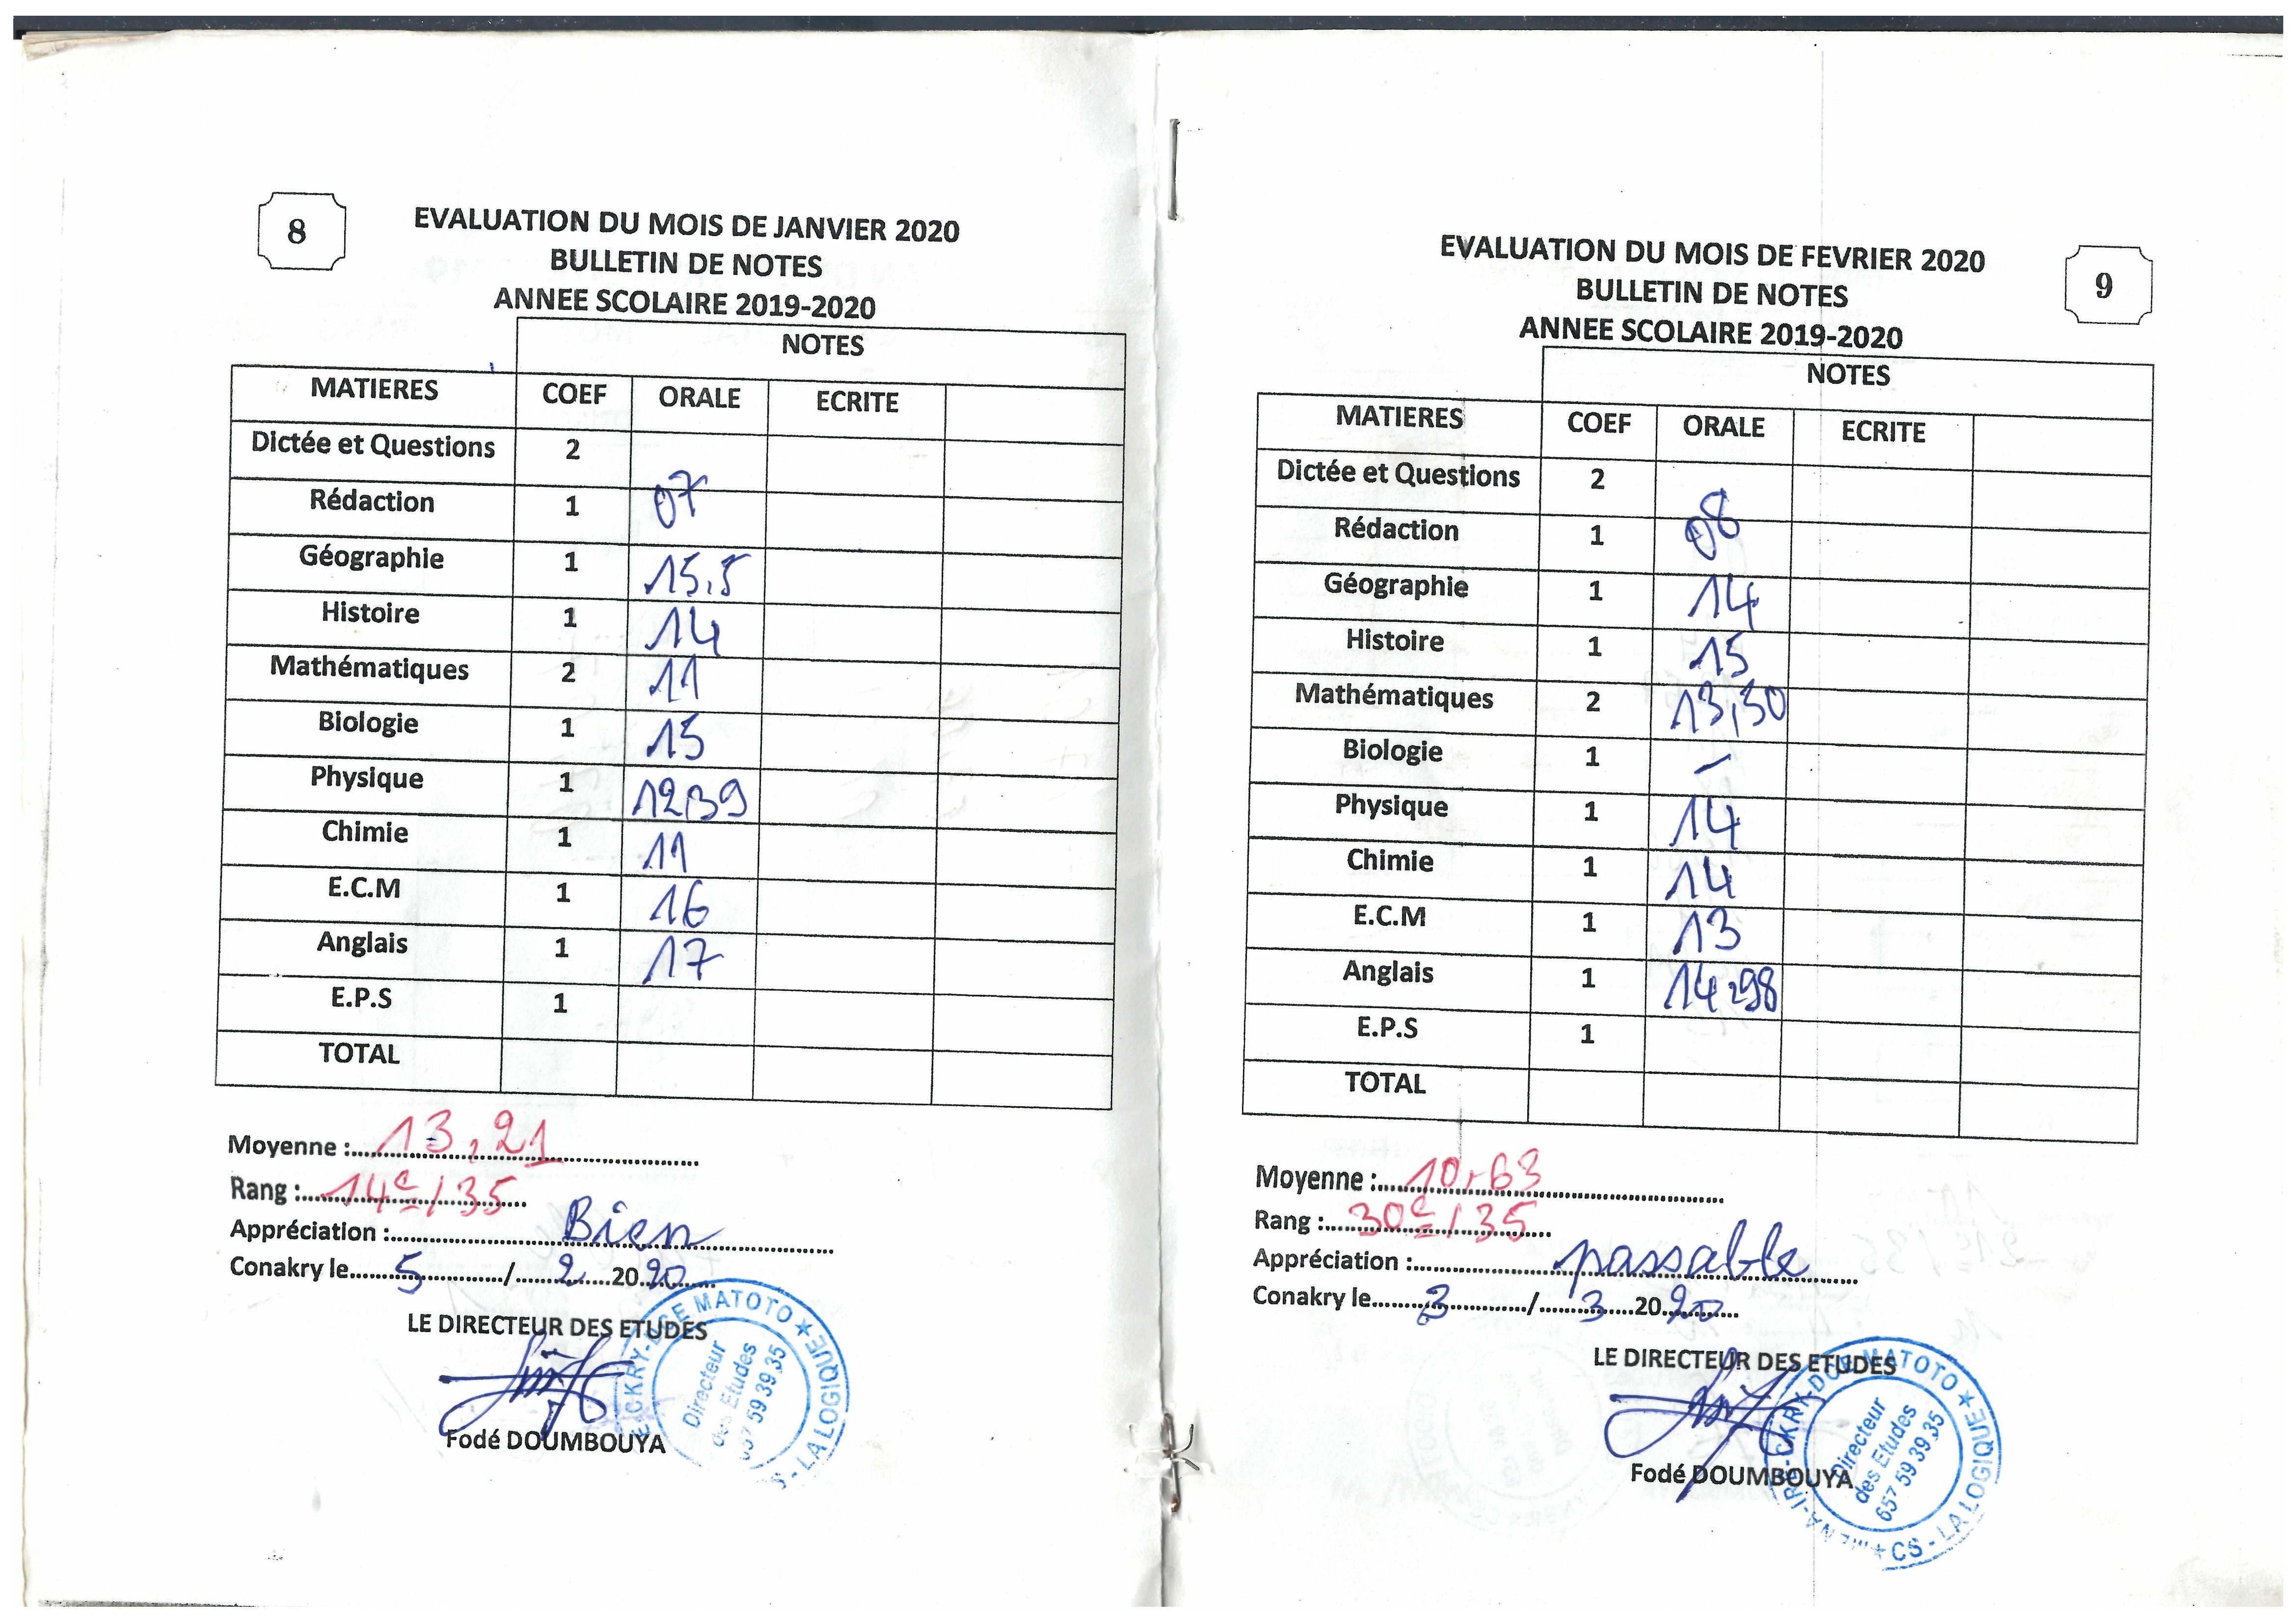 8
EVALUATION DU MOIS DE JANVIER 2020
BULLETIN DE NOTES
ANNEE SCOLAIRE 2019-2020
NOTES
MATIERES COEF ORALE ECRITE
Dictée et Questions 2
Rédaction 1 07
Géographie 1 15,5
Histoire 1 14
Mathématiques 2 11
Biologie 1 15
Physique 1 12,39
Chimie 1 11
E.C.M 1 16
Anglais 1 17
E.P.S 1
TOTAL
Moyenne : 13,21
Rang : 14e/35
Appréciation : Bien
Conakry le 5 / 2 2020
LE DIRECTEUR DES ETUDES
Fodé DOUMBOUYA
CKRY-DCE MATOTO ★ CS - LA LOGIQUE
Directeur
des Etudes
657 59 39 35
EVALUATION DU MOIS DE FEVRIER 2020
BULLETIN DE NOTES
ANNEE SCOLAIRE 2019-2020
9
NOTES
MATIERES COEF ORALE ECRITE
Dictée et Questions 2
Rédaction 1 08
Géographie 1 14
Histoire 1 15
Mathématiques 2 13,50
Biologie 1 -
Physique 1 14
Chimie 1 14
E.C.M 1 13
Anglais 1 14,98
E.P.S 1
TOTAL
Moyenne : 10,63
Rang : 30e/35
Appréciation : passable
Conakry le 3 / 3 2020
LE DIRECTEUR DES ETUDES
Fodé DOUMBOUYA
MENA-IRE-CKRY-DCE MATOTO ★ CS - LA LOGIQUE ★
Directeur
des Etudes
657 59 39 35